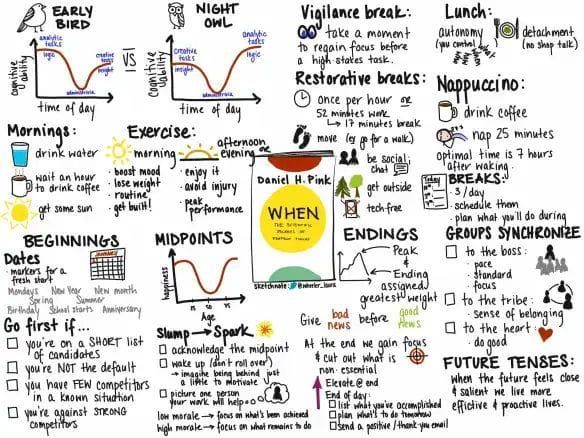 EARLY
BIRD
analytic
tasks
logic
creative
tasks
insight
administrative
cognitive
ability
time of day
VS
NIGHT
OWL
creative
tasks
insight
analytic
tasks
logic
administrative
cognitive
ability
time of day
Vigilance break:
take a moment
to regain focus before
a high-stakes task.
Restorative breaks:
once per hour or
52 minutes work
17 minute break
move (eg go for a walk)
be social;
chat
get outside
tech-free
Lunch:
autonomy
(you control)
detachment
(no shop talk)
Nappuccino:
drink coffee
nap 25 minutes
optimal time is 7 hours
after waking.
Today
BREAKS:
- 3/day
- schedule them
- plan what you'll do during
Mornings:
drink water
wait an hour
to drink coffee
get some sun
Exercise:
morning
- boost mood
- lose weight
- routine
- get built!
afternoon
evening or
- enjoy it
- avoid injury
- peak
performance
Daniel H. Pink
WHEN
THE SCIENTIFIC
SECRETS OF
PERFECT TIMING
sketchnote @wheeler_laura
BEGINNINGS
Dates
- markers for a
fresh start
JANUARY
Mondays New Year New month
Spring Summer
Birthday School starts Anniversary
Go first if...
you're on a SHORT list
of candidates
you're NOT the default
you have FEW competitors
in a known situation
you're against STRONG
competitors
MIDPOINTS
happiness
Age
Slump → Spark
acknowledge the midpoint
wake up (don't roll over)
→ imagine being behind just
a little to motivate
picture one person
your work will help
low morale → focus on what's been achieved
high morale → focus on what remains to do
ENDINGS
Peak
&
Ending
assigned
greatest weight
Give bad news before good news
At the end we gain focus
& cut out what is
non-essential
Elevate @ end
End of day:
list what you've accomplished
plan what's to do tomorrow
send a positive / thank you email
GROUPS SYNCHRONIZE
to the boss:
- pace
- standard
- focus
to the tribe:
- sense of belonging
to the heart:
- do good
FUTURE TENSES:
when the future feels close
& salient we live more
effective & proactive lives.